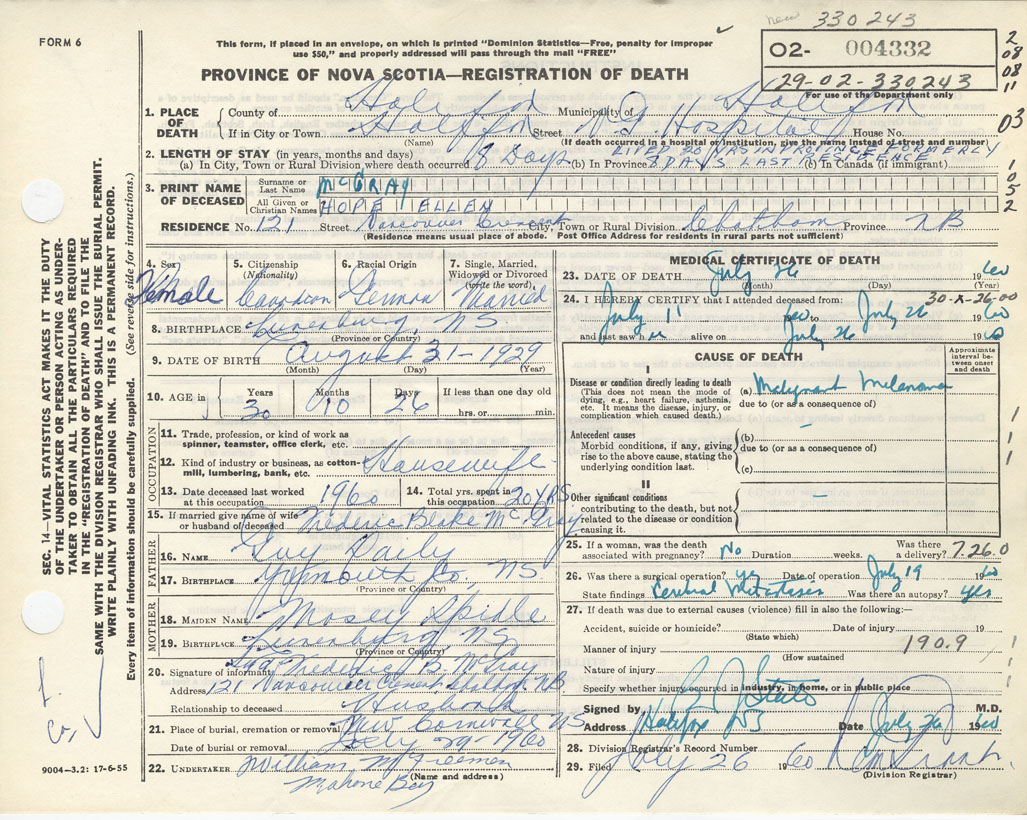 new 330243
FORM 6
This form, if placed in an envelope, on which is printed "Dominion Statistics—Free, penalty for improper
use $50," and properly addressed will pass through the mail "FREE"
PROVINCE OF NOVA SCOTIA—REGISTRATION OF DEATH
O2- 004332
29-02-330243
For use of the Department only
2
08
08
11
03
1. PLACE OF DEATH
County of Halifax Municipality of Halifax
If in City or Town Halifax Street N.S. Hospital House No.
(Name) (If death occurred in a hospital or institution, give the name instead of street and number)
2. LENGTH OF STAY (in years, months and days)
LIFE, 20 YRS IN PROVINCE FORMERLY
(a) In City, Town or Rural Division where death occurred 8 Days (b) In Province 8 DAYS LAST RESIDENCE (b) In Canada (if immigrant)
3. PRINT NAME OF DECEASED
Surname or Last Name McGRAY
All Given or Christian Names HOPE ELLEN
1
0
5
2
RESIDENCE No. 121 Street Vancouver Crescent City, Town or Rural Division Chatham Province NB
(Residence means usual place of abode. Post Office Address for residents in rural parts not sufficient)
4. Sex Female
5. Citizenship (Nationality) Canadian
6. Racial Origin German
7. Single, Married, Widowed or Divorced (write the word) Married
8. BIRTHPLACE Lunenburg, NS
(Province or Country)
9. DATE OF BIRTH August 31-1929
(Month) (Day) (Year)
10. AGE in Years 30 Months 10 Days 26 If less than one day old
hrs. or min.
OCCUPATION
11. Trade, profession, or kind of work as spinner, teamster, office clerk, etc.
12. Kind of industry or business, as cotton-mill, lumbering, bank, etc. Housewife
13. Date deceased last worked at this occupation 1960
14. Total yrs. spent in this occupation 20 YRS
15. If married give name of wife or husband of deceased Frederic Blake McGray
FATHER
16. NAME Guy Daily
17. BIRTHPLACE Yarmouth Co., NS
(Province or Country)
MOTHER
18. MAIDEN NAME Mosey Spidle
19. BIRTHPLACE Lunenburg, NS
(Province or Country)
20. Signature of informant Sgd Frederic B. McGray
Address 121 Vancouver Crescent, Chatham NB
Relationship to deceased Husband
21. Place of burial, cremation or removal New Cornwall NS
Date of burial or removal July 29-1960
22. UNDERTAKER William M Freeman
(Name and address)
Mahone Bay
MEDICAL CERTIFICATE OF DEATH
23. DATE OF DEATH July 26 1960
(Month) (Day) (Year)
30-X-26-00
24. I HEREBY CERTIFY that I attended deceased from:
July 11 1960 to July 26 1960
and last saw her alive on July 26 1960
CAUSE OF DEATH
Approximate interval between onset and death
I
Disease or condition directly leading to death
(This does not mean the mode of dying, e.g., heart failure, asthenia, etc. It means the disease, injury, or complication which caused death.)
(a) Malignant Melanoma
due to (or as a consequence of)
Antecedent causes
Morbid conditions, if any, giving rise to the above cause, stating the underlying condition last.
(b) —
due to (or as a consequence of)
(c)
II
Other significant conditions
contributing to the death, but not related to the disease or condition causing it. —
1
1
1
25. If a woman, was the death associated with pregnancy? No Duration weeks. Was there a delivery? 7.26.0
26. Was there a surgical operation? yes Date of operation July 19 1960
State findings Cerebral Metastases Was there an autopsy? yes
27. If death was due to external causes (violence) fill in also the following:—
Accident, suicide or homicide? Date of injury 19
(State which)
Manner of injury 190.9
(How sustained)
Nature of injury
Specify whether injury occurred in industry, in home, or in public place
Signed by M.D.
Address Halifax NS Date July 26 1960
28. Division Registrar's Record Number
29. Filed July 26 1960
(Division Registrar)
SEC. 14—VITAL STATISTICS ACT MAKES IT THE DUTY
OF THE UNDERTAKER OR PERSON ACTING AS UNDER-
TAKER TO OBTAIN ALL THE PARTICULARS REQUIRED
IN THE "REGISTRATION OF DEATH" AND TO FILE THE
SAME WITH THE DIVISION REGISTRAR WHO SHALL ISSUE THE BURIAL PERMIT.
WRITE PLAINLY WITH UNFADING INK. THIS IS A PERMANENT RECORD.
Every item of information should be carefully supplied. (See reverse side for instructions.)
9004—3.2: 17-6-55